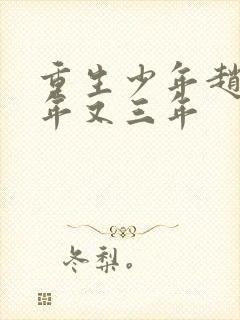 重生少年趙
年又三年
冬梨。